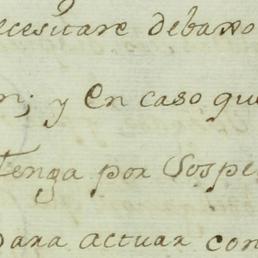 ecesitare debaxo
n; y en caso que
tenga por Sospe
para actuar con